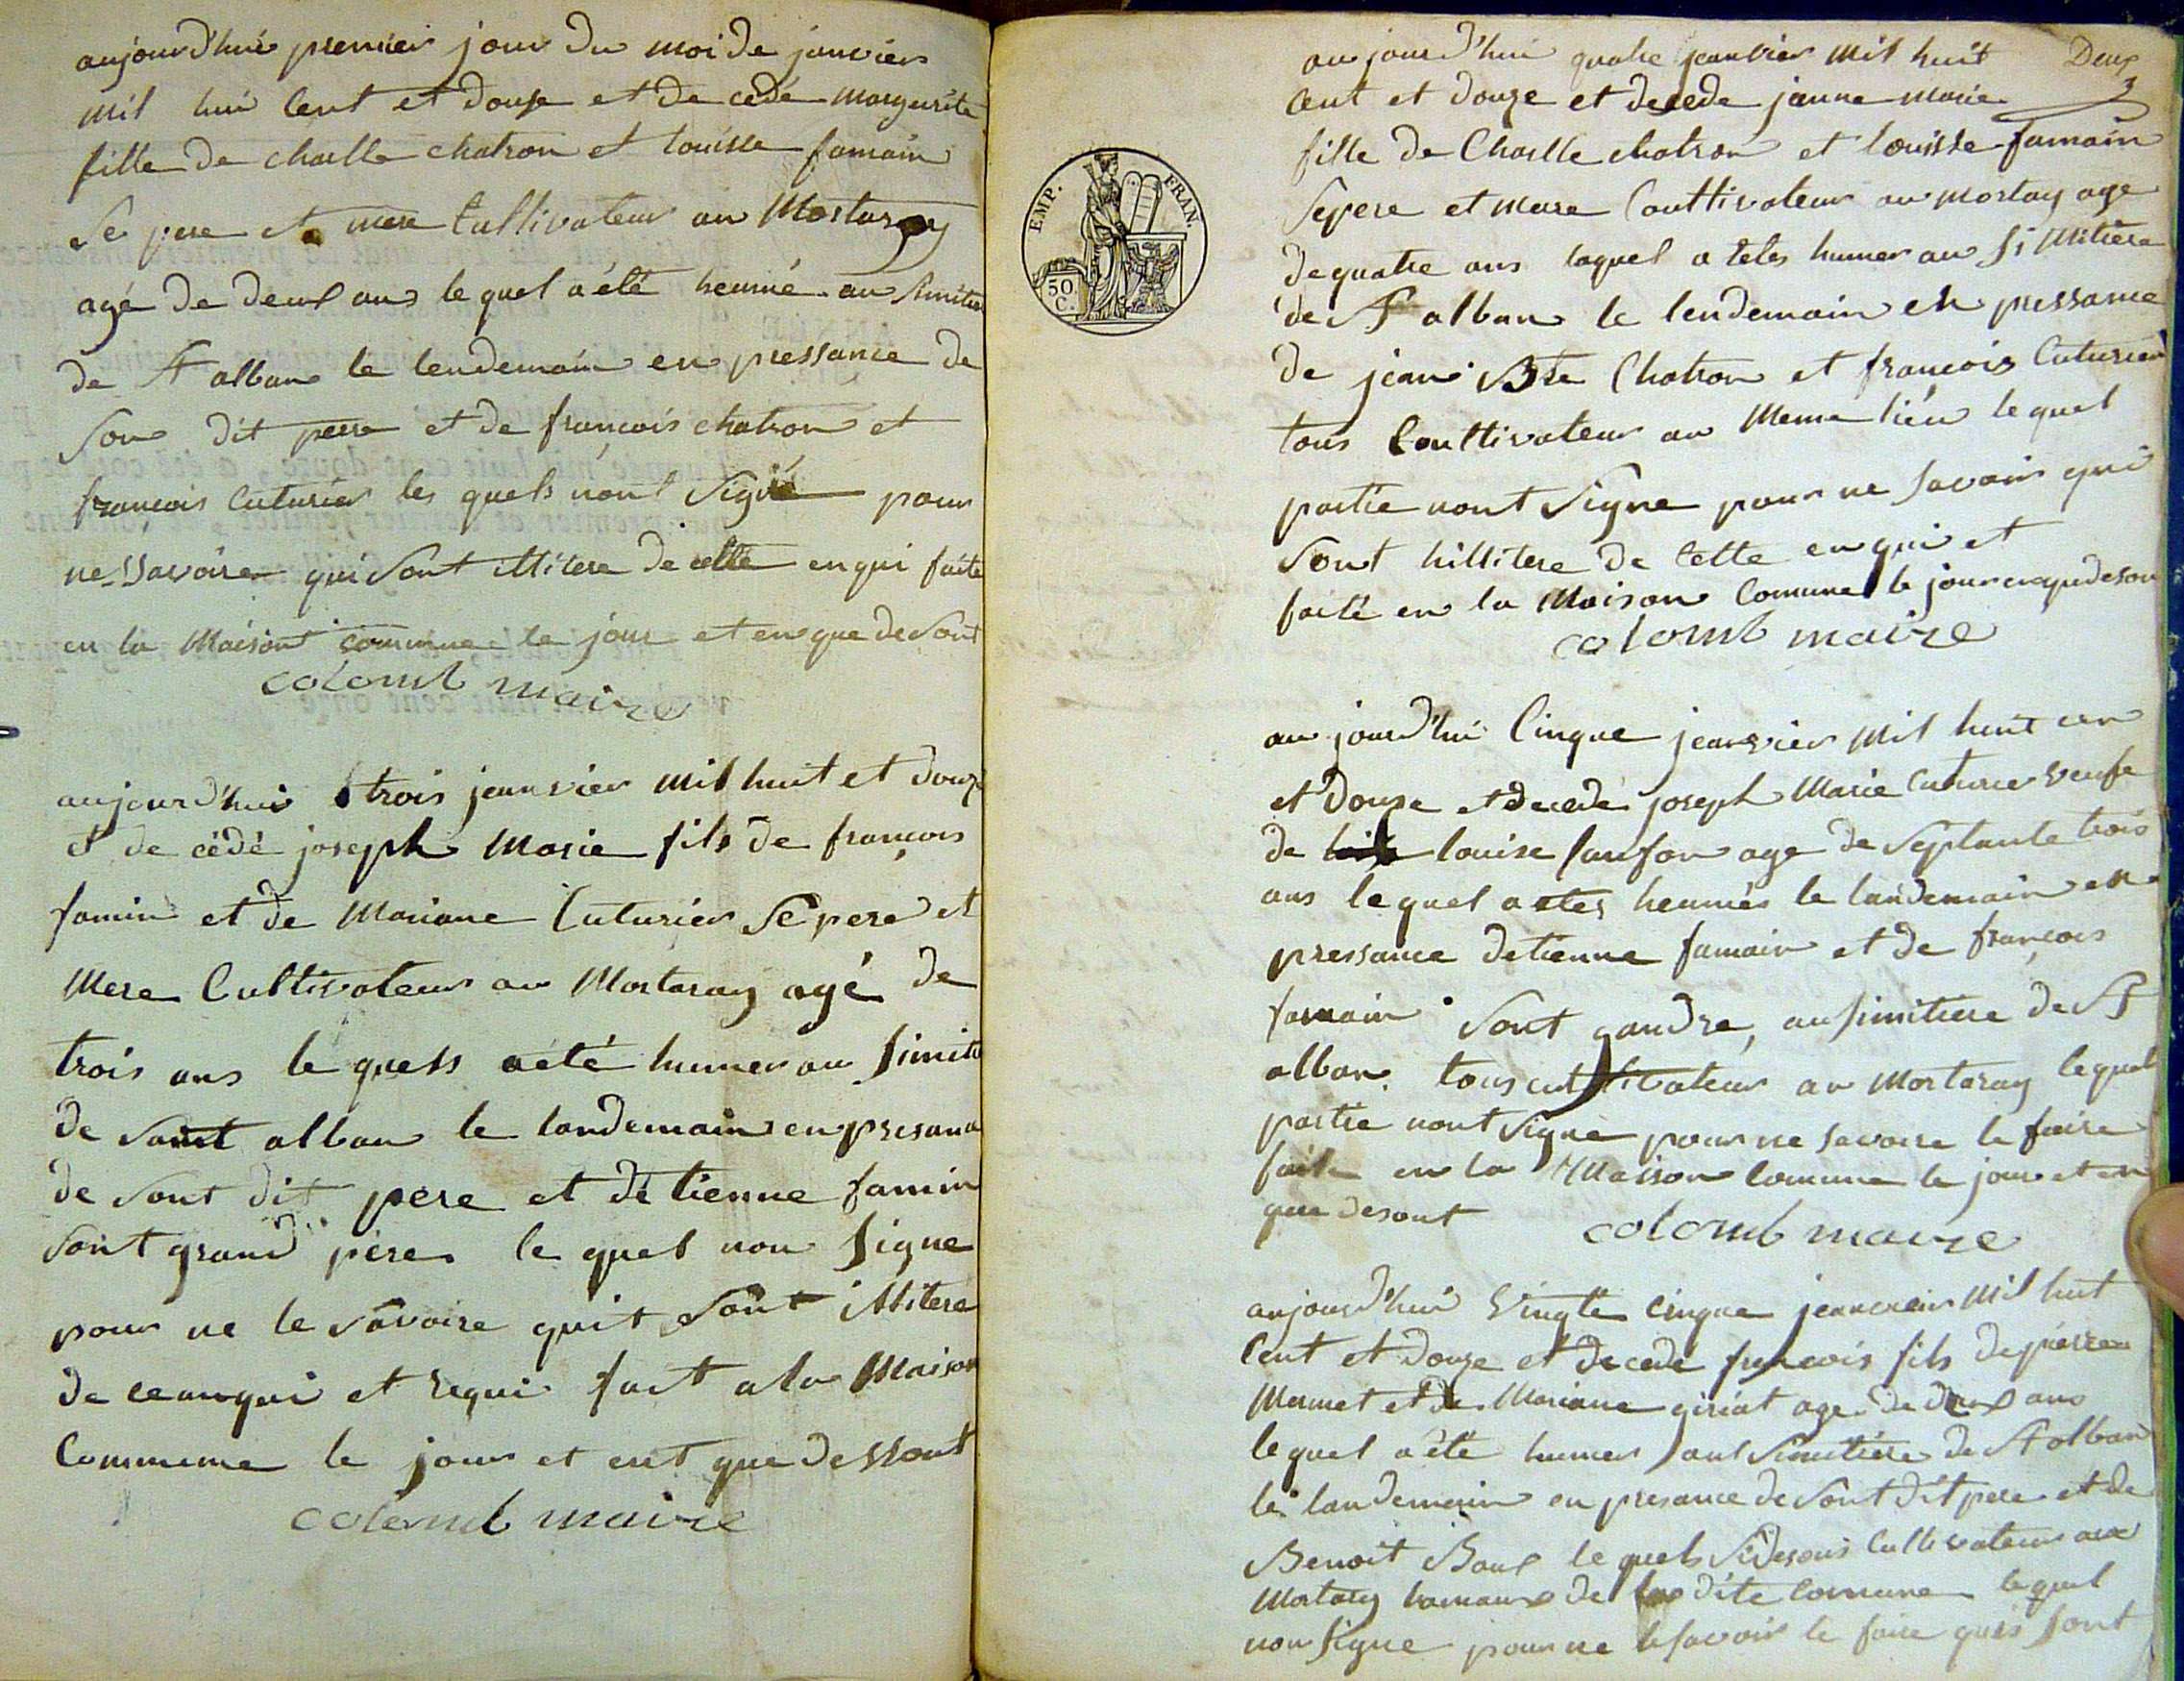 aujourd'hui premier jour du moi de janvier
mil hui Cent et douse et de cedé margurite
fille de charlle chatron et louisse famain
Se pere et mere Cultivateur au Mortaray
agé de deux ans le quel a été heumé au simitie
de St alban le lendemain en pressance de
Son dit perre et de francois chatron et
françois Cuturier les quels n'ont Signé pour
ne Savoire qui Sont illitere de cette enqui faite
en la Maison commune le jour et en que de Sont
colomb maire
aujourd'hui trois jeanvier mil huit et douze
et de cédé joseph Marie fils de françois
famin et de Mariane Cuturier Se pere et
Mere Cultivateur au Mortaray agé de
trois ans le quels aété humer au simite
de saint alban le landemain en presana
de Sont dit pere et de tienne famin
Sont grand pere le quel non signe
pour ne le savoire quit Sont illitere
de ceanqui et requi fait a la Maison
Commeme le jour et ent que dessont
colomb maire
Deux
3
au jourd'hui quatre jeanvier mil huit
Cent et douze et decede janne marie
fille de Charlle chatron et louisse famain
Se pere et mere Coultivateur au mortay age
de quatre ans laquel a tetes humer au Si Mitiere
de St alban le lendemain en pressance
de jean Bte Chatron et francois Cuturier
tous Coultivateur au Meme lieu le quel
partie nont Signe pour ne savoir qui
Sont hillitere de Cette enqui et
faite en la Maison Comune le jour enquedeson
colomb maire
au jourd'hui Cinque jeanvier mil huit cen
et Douse et decede joseph Marie Cuturier veufe
de louise age de Septante trois
ans lequel a etes heumés le landemain en
pressance detienne famain et de françois
famain Sont gandre, au simitiere de St
alban tous cultivateur au Mortaray lequel
partie nont Signe pour ne savoire le faire
faite en la Maison Comune le jour et en
que desont colomb maire
aujourd'hui vingte cinque mil huit
Cent et douze et decedé francois fils de pierre
Mermet et de Mariane giriat age de deux ans
le quel a été humer au Simitiere de St alban
le landemain en presance de Sont dit pere et de
Benoit le quels Cultivateur aux
Mortaray de la dite Comune lequel
non signe pour ne le savoir le faire quis sont
EMP. FRAN.
50 C.